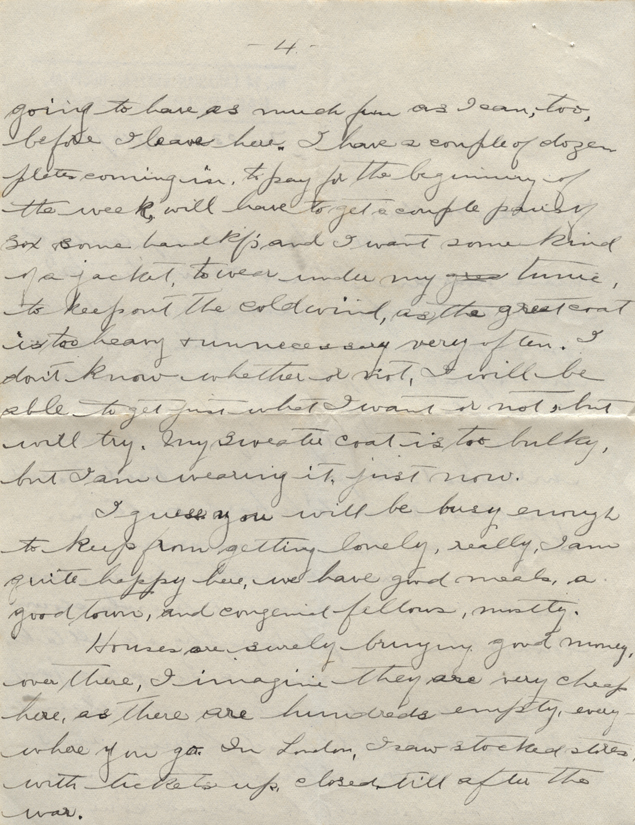 - 4 -
going to have as much fun as I can, too,
before I leave here. I have a couple of dozen
plates coming in, to pay for the beginning of
the week, will have to get a couple pairs of
sox some handkfs and I want some kind
of a jacket, to wear under my tunic,
to keep out the cold wind, as the great coat
is too heavy & unnecessary very often. I
don't know whether or not, I will be
able to get just what I want or not, but
will try. My sweater coat is too bulky,
but I am wearing it, just now.
I guess you will be busy enough
to keep from getting lonely, really, I am
quite happy here, we have good meals, a
good town, and congenial fellows, mostly.
Houses are surely bringing good money,
over there, I imagine they are very cheap
here, as there are hundreds empty, every-
where you go. In London, I saw stocked stores,
with tickets up, closed till after the
war.